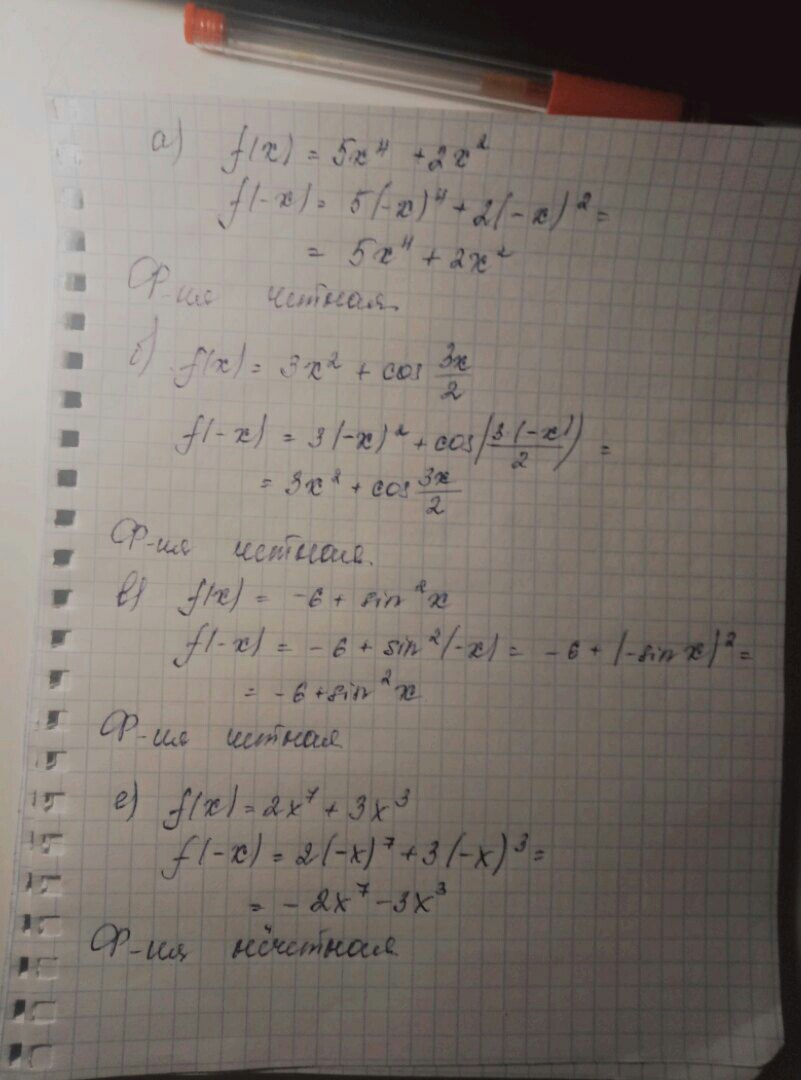 а) f(x) = 5x⁴ + 2x²
f(-x) = 5(-x)⁴ + 2(-x)² =
= 5x⁴ + 2x²
Ф-ия четная.
б) f(x) = 3x² + cos 3x/2
f(-x) = 3(-x)² + cos(3·(-x)/2) =
= 3x² + cos 3x/2
Ф-ия четная.
в) f(x) = -6 + sin²x
f(-x) = -6 + sin²(-x) = -6 + (-sin x)² =
= -6 + sin²x
Ф-ия четная
е) f(x) = 2x⁷ + 3x³
f(-x) = 2(-x)⁷ + 3(-x)³ =
= -2x⁷ - 3x³
Ф-ия нечетная